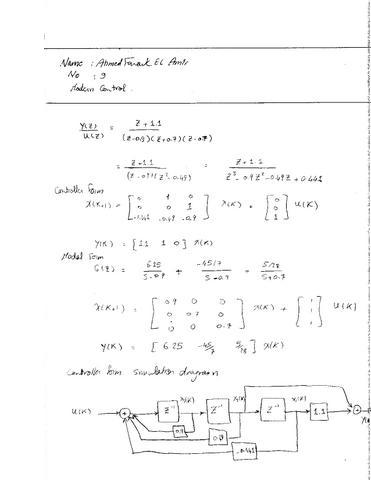 Name : Ahmed Farouk EL Amir
No : 9
Modern Control
Y(Z)/U(Z) = Z+1.1 / (Z-0.9)(Z+0.7)(Z-0.7)
= Z+1.1 / (Z-0.9)(Z²-0.49) = Z+1.1 / Z³-0.9Z²-0.49Z+0.441
Controller form
X(K+1) = [0 1 0
0 0 1
-0.441 0.49 -0.9] X(K) + [0
0
1] U(K)
Y(K) = [1.1 1 0] X(K)
Modal form
G(Z) = 6.25/S-0.9 + -45/7/S-0.7 + 5/28/S+0.7
X(K+1) = [0.9 0 0
0 0.7 0
0 0 0.7] X(K) + [1
1
1] U(K)
Y(K) = [6.25 -45/7 5/28] X(K)
Controller form simulation diagram
U(K) + Z⁻¹ X₃(K) Z⁻¹ X₂(K) Z⁻¹ X₁(K) 1.1 +
0.9
-0.441